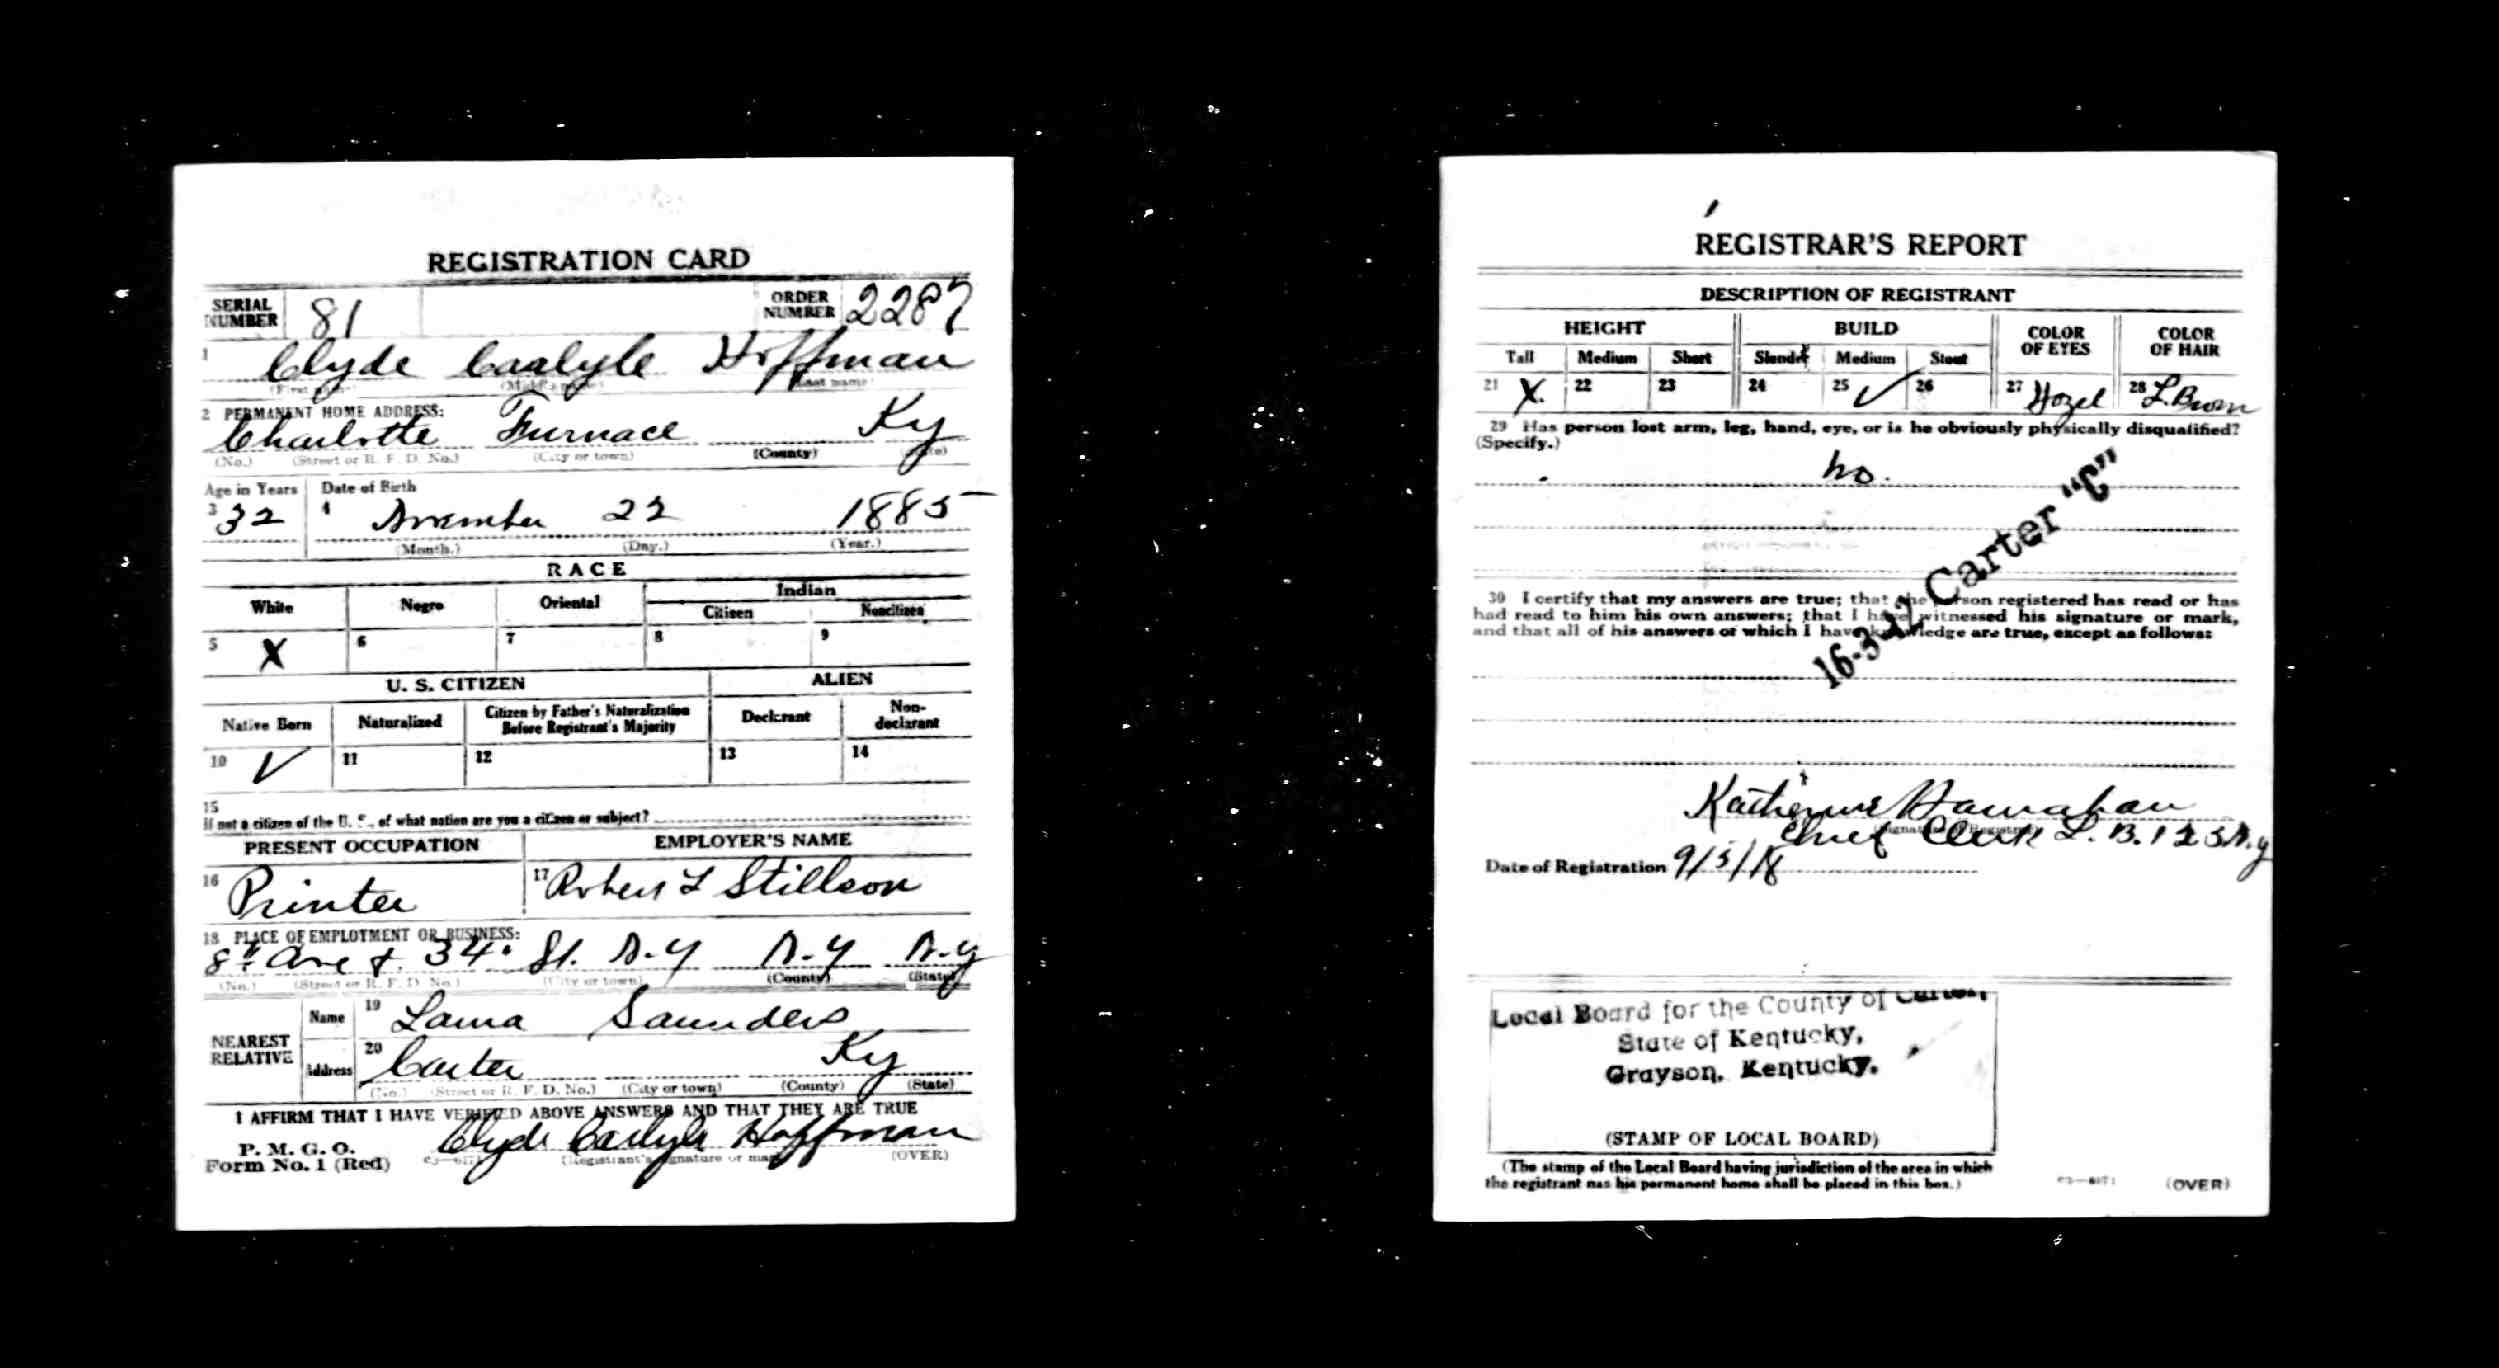 REGISTRATION CARD
SERIAL NUMBER 81 ORDER NUMBER 2287
1 Clyde Carlyle Hoffman
(First name) (Middle name) (Last name)
2 PERMANENT HOME ADDRESS:
Charlotte Furnace Ky
(No.) (Street or R. F. D. No.) (City or town) (County) (State)
Age in Years Date of Birth
3 32 4 November 22 1885
(Month.) (Day.) (Year.)
RACE
White Negro Oriental Indian
Citizen Noncitizen
5 X 6 7 8 9
U. S. CITIZEN ALIEN
Native Born Naturalized Citizen by Father's Naturalization Before Registrant's Majority Declarant Non-declarant
10 ✓ 11 12 13 14
15
If not a citizen of the U. S., of what nation are you a citizen or subject?
PRESENT OCCUPATION EMPLOYER'S NAME
16 Printer 17 Robert L Stillson
18 PLACE OF EMPLOYMENT OR BUSINESS:
8th Ave & 34th St. N-Y N-Y N-Y
(No.) (Street or R. F. D. No.) (City or town) (County) (State)
NEAREST RELATIVE Name 19 Laura Saunders
Address 20 Carter Ky
(No.) (Street or R. F. D. No.) (City or town) (County) (State)
I AFFIRM THAT I HAVE VERIFIED ABOVE ANSWERS AND THAT THEY ARE TRUE
P. M. G. O.
Form No. 1 (Red) Clyde Carlyle Hoffman
(Registrant's signature or mark) (OVER)
REGISTRAR'S REPORT
DESCRIPTION OF REGISTRANT
HEIGHT BUILD COLOR OF EYES COLOR OF HAIR
Tall Medium Short Slender Medium Stout
21 X. 22 23 24 25 ✓ 26 27 Hazel 28 L. Brown
29 Has person lost arm, leg, hand, eye, or is he obviously physically disqualified?
(Specify.)
No.
16-3-12 Carter "C"
30 I certify that my answers are true; that the person registered has read or has
had read to him his own answers; that I have witnessed his signature or mark,
and that all of his answers of which I have knowledge are true, except as follows:
Katherine
(Signature of Registrar)
Chief Clerk L. B. 123 N.Y
Date of Registration 9/5/18
Local Board for the County of Carter,
State of Kentucky,
Grayson, Kentucky.
(STAMP OF LOCAL BOARD)
(The stamp of the Local Board having jurisdiction of the area in which
the registrant has his permanent home shall be placed in this box.)
(OVER)